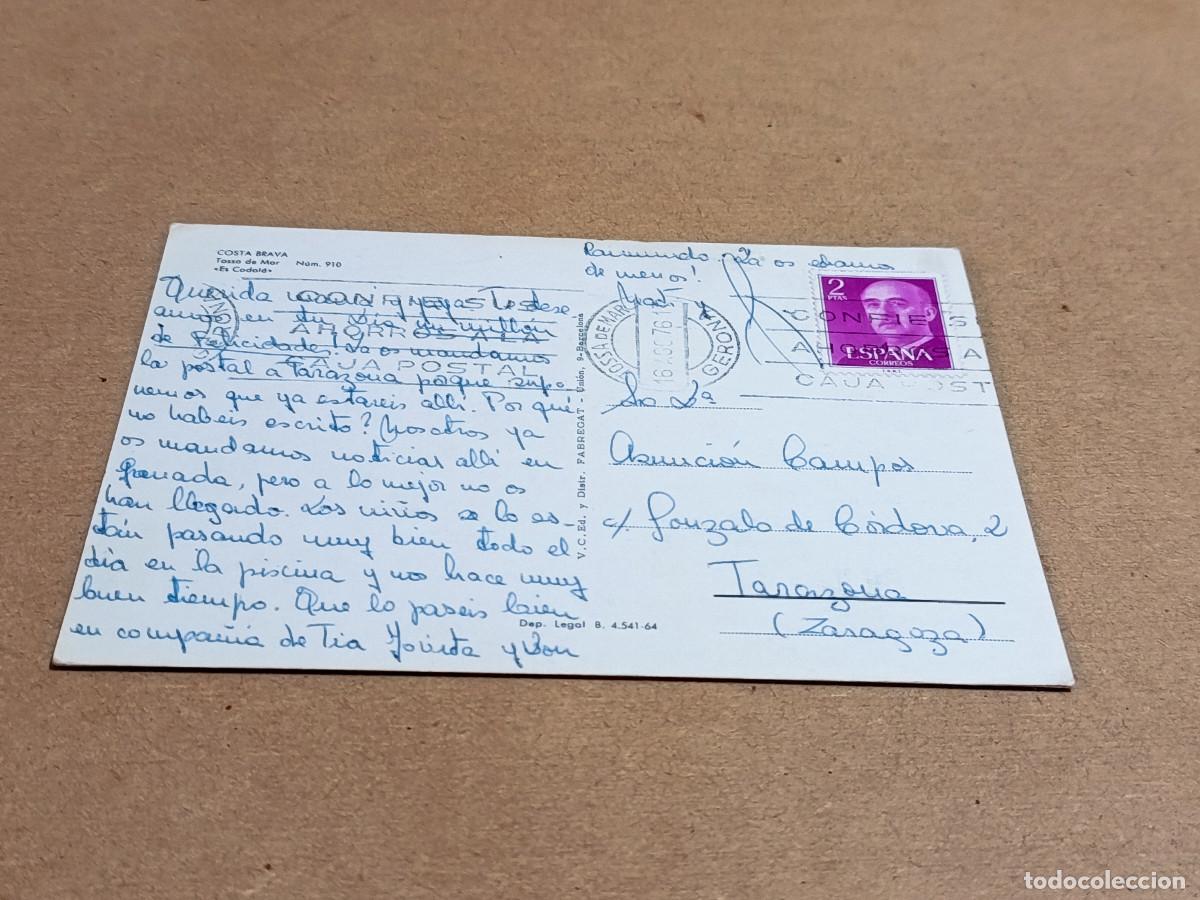 COSTA BRAVA
Tossa de Mar Núm. 910
«Es Codolá»
Querida y Te dese
amos en tu día un millón
de felicidades. Ya os mandamos
la postal a Tarazona porque supo
nemos que ya estareis allí. Por qué
no habeis escrito? Nosotros ya
os mandamos noticias allí en
Granada, pero a lo mejor no os
han llegado. Los niños se lo es-
tán pasando muy bien todo el
día en la piscina y nos hace muy
buen tiempo. Que lo paseis bien
en compañia de Tia Jovita y Don
Raimundo. Ya os echamos
de menos!
y
CONFIE SUS
AHORROS A LA
CAJA POSTAL
TOSSA DE MAR
GERONA
2
PTAS
ESPAÑA
CORREOS
CONFIE S
A
CAJA POST
V. C. Ed. y Distr. FABREGAT - Unión, 9 - Barcelona
Dep. Legal B. 4.541-64
Sra Dª
Asunción Campos
c/ Gonzalo de Córdova, 2
Tarazona
(Zaragoza)
todocoleccion